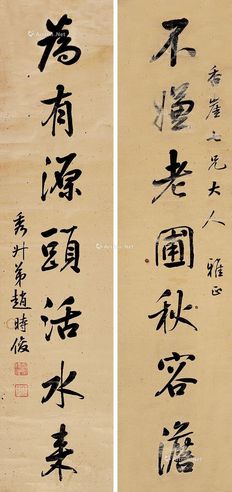 香崖七兄大人 雅正
不嫌老圃秋容澹
為有源頭活水来
秀升弟趙時俊